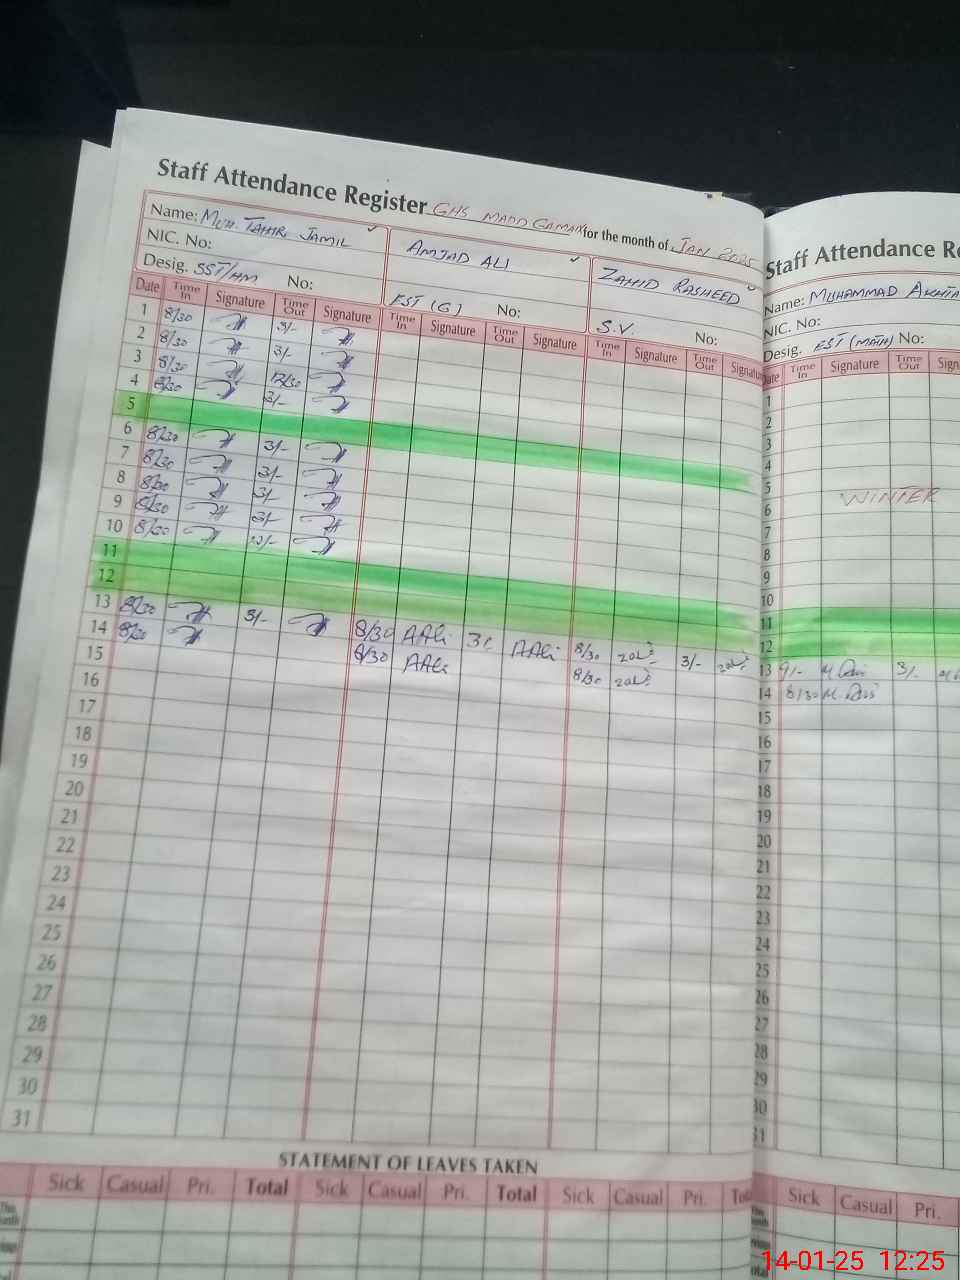 Staff Attendance Register GHS for the month of JAN 2025
Name: MUH. TAHIR JAMIL
AMJAD ALI
ZAHID RASHEED
NIC. No:
Desig. SST/HM No:
EST (G) No:
S.V. No:
Date Time In Signature Time Out Signature Time In Signature Time Out Signature Time In Signature Time Out Signatur
1 8/30 3/-
2 8/30 3/-
3 8/30 12/30
4 8/30 3/-
5
6 8/30 3/-
7 8/30 3/-
8 8/30 3/-
9 8/30 3/-
10 8/30
11
12
13 8/30 3/- 8/30 AAli 3/- AAli 8/30 3/-
14 8/30 8/30 AAli 8/30
15
16
17
18
19
20
21
22
23
24
25
26
27
28
29
30
31
STATEMENT OF LEAVES TAKEN
Sick Casual Pri. Total Sick Casual Pri. Total Sick Casual Pri.
Staff Attendance Re
Name: MUHAMMAD
NIC. No:
Desig. EST (MATH) No:
Date Time In Signature Time Out Sign
1
2
3
4
5
6 WINTER
7
8
9
10
11
12
13 9/- 3/-
14 8/30
15
16
17
18
19
20
21
22
23
24
25
26
27
28
29
30
31
Sick Casual Pri.
14-01-25 12:25